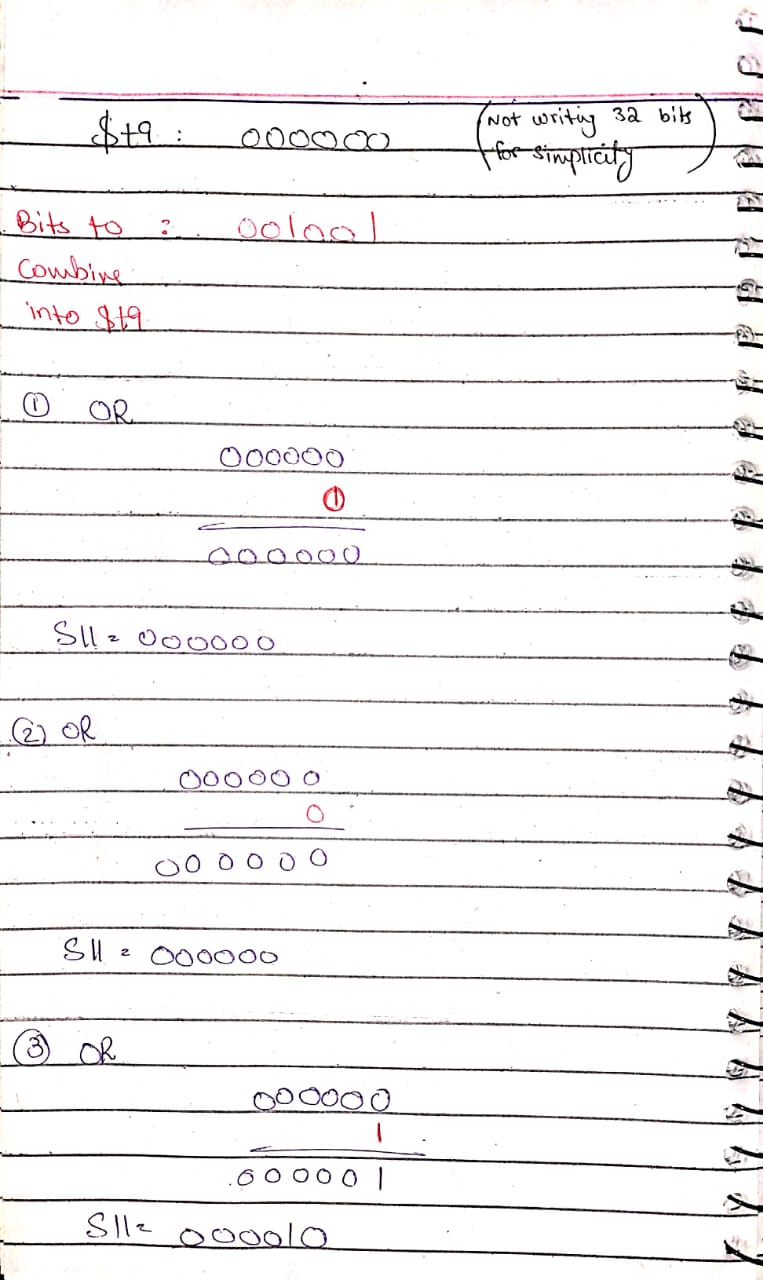 $t9 : 000000 (Not writing 32 bits
for simplicity)
Bits to : 001001
Combine
into $t9
① OR
000000
0
000000
Sll = 000000
② OR
000000
0
000000
Sll = 000000
③ OR
000000
1
000001
Sll = 000010